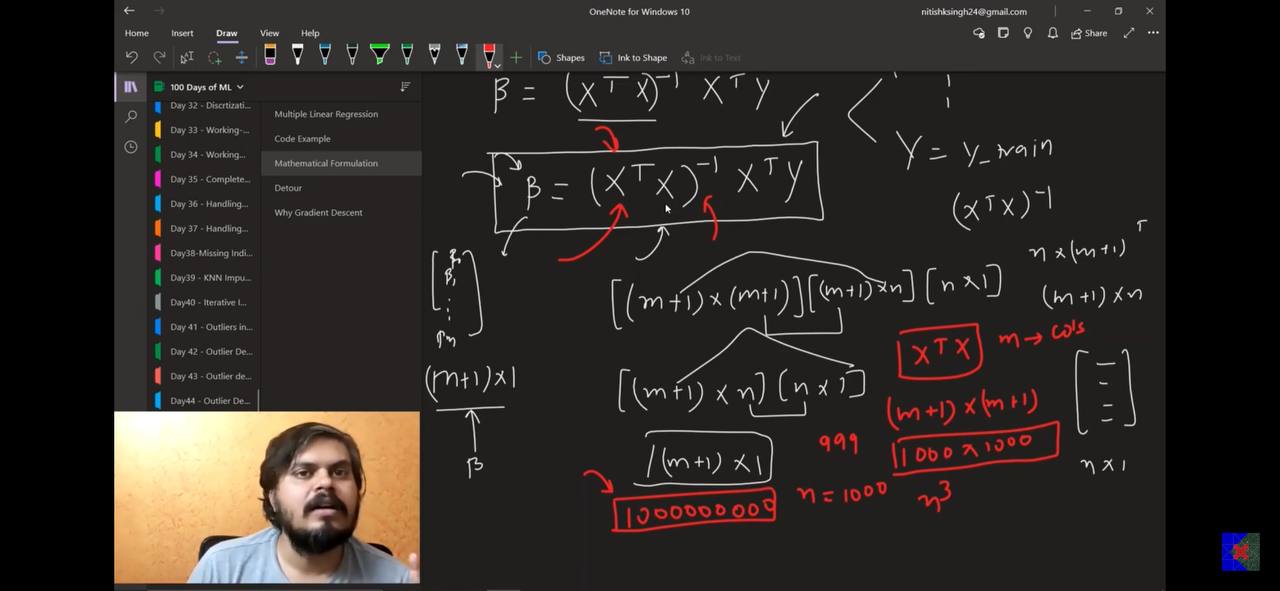 OneNote for Windows 10
nitishksingh24@gmail.com
Home Insert Draw View Help
Share
Shapes Ink to Shape Ink to Text
100 Days of ML
Day 32 - Discrtizati...
Day 33 - Working-...
Day 34 - Working...
Day 35 - Complete...
Day 36 - Handling...
Day 37 - Handling...
Day38-Missing Indi...
Day39 - KNN Impu...
Day40 - Iterative I...
Day 41 - Outliers in...
Day 42 - Outlier De...
Day 43 - Outlier de...
Day44 - Outlier De...
Multiple Linear Regression
Code Example
Mathematical Formulation
Detour
Why Gradient Descent
β = (XᵀX)⁻¹ XᵀY
Y = y_train
β = (XᵀX)⁻¹ XᵀY
(XᵀX)⁻¹
n × (m+1)ᵀ
[(m+1) × (m+1)][(m+1) × n] [n × 1]
(m+1) × n
β₀
β₁
⋮
βm
XᵀX m → cols
(m+1) × 1
[(m+1) × n] [n × 1]
(m+1) × (m+1)
999
1000 × 1000
(m+1) × 1
β
n × 1
1000000000
n = 1000
n³